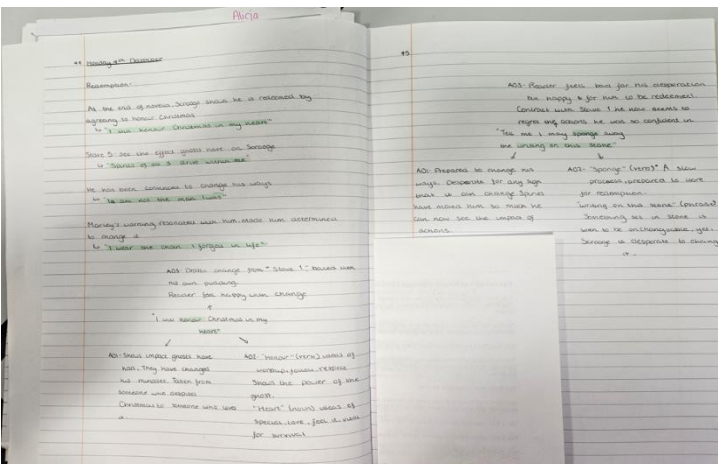 Alicia
44 Monday 4th December
Redemption:
At the end of novella, Scrooge shows he is redeemed by
agreeing to honour Christmas
↳ "I will honour Christmas in my heart"
Stave 5: see the effect ghosts have on Scrooge
↳ "Spirits of all 3 strive within me"
He has been convinced to change his ways
↳ "I am not the man I was"
Marley's warning resonated with him. Made him determined
to change it
↳ "I wear the chain I forged in life"
AO3: Drastic change from "Stave 1" boiled with
his own pudding.
Reader feels happy with change
"I will honour Christmas in my
heart"
AO1: Shows impact ghosts have
had. They have changed
his mindset. Taken from
someone who despises
Christmas to someone who loves
it.
AO2: "Honour" (verb) ideas of
worship, power, respect
Shows the power of the
ghosts.
"Heart" (noun) ideas of
special, love, feels it
for survival
45
AO3: Reader feels bad for his desperation
but happy for him to be redeemed.
Contrast with Stave 1 he now seems to
regret the actions he was so confident in
"Tell me I may sponge away
the writing on this stone"
AO1: Prepared to change his
ways. Desperate for any sign
that it can change. Spirits
have moved him so much he
can now see the impact of
actions.
AO2: "Sponge" (verb) A slow
process, prepared to work
for redemption.
"writing on this stone" (phrase)
Something set in stone is
seen to be unchangeable, yet
Scrooge is desperate to change
it.